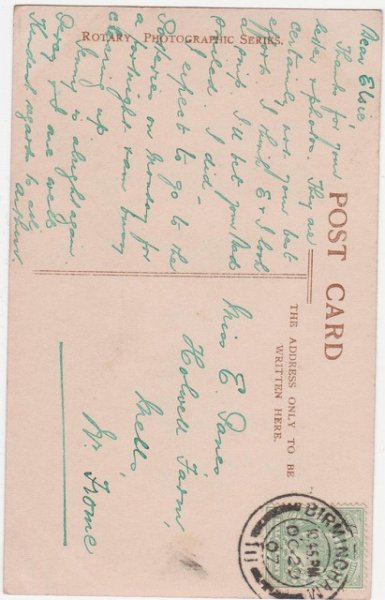 ROTARY PHOTOGRAPHIC SERIES.
POST CARD
THE ADDRESS ONLY TO BE
WRITTEN HERE.
Dear Elsie,
Thanks for your
letter & photos. They are
certainly not your best
efforts I think E & I look
I'll bet you had
smiled I did -
I expect to go to the
on Monday for
a fortnight am busy
clearing up
Jenny is alright again
Percy & I are well
Kindest regards to all
Arthur
Miss E. Jones
Holwell Farm,
Mells,
Nr. Frome
BIRMINGHAM
10.45 PM
OC 2
07